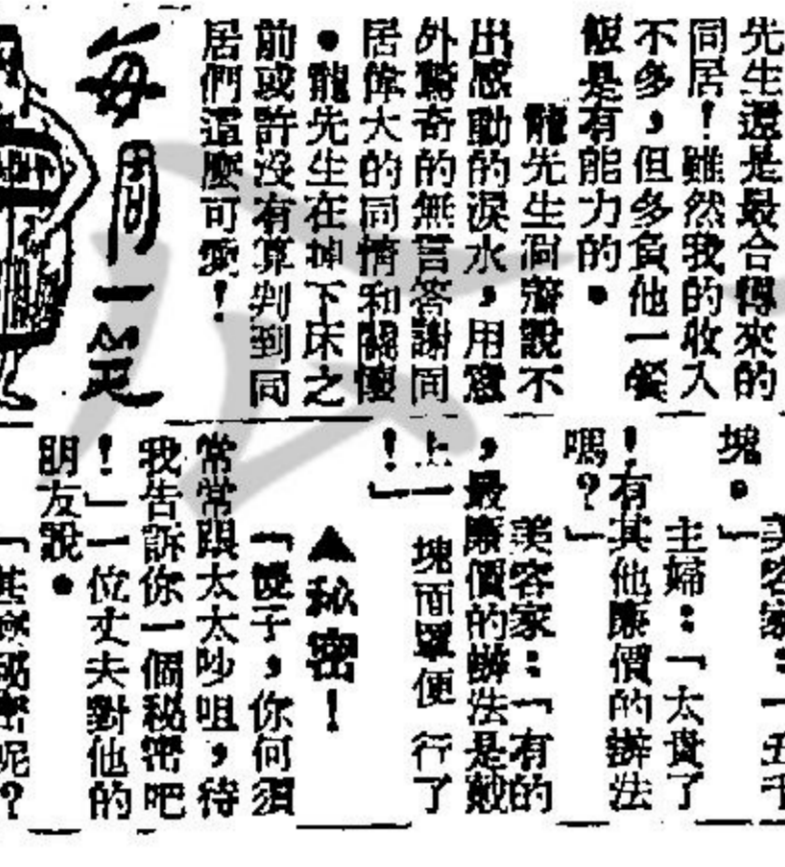 先生還是最合得來的
同居！雖然我的收入
不多，但多負他一餐
飯是有能力的。
龍先生倒辦說不
出感動的淚水，用意
外驚奇的無言答謝同
居偉大的同情和關懷
。龍先生在坤下床之
前或許沒有算判到同
居們這麼可愛！
每月一笑
美容家：「五千
塊。」
主婦：「太貴了
！有其他廉價的辦法
嗎？」
美容家：「有的
，最廉價的辦法是戴
上一塊面罩便行了
！」
▲秘密！
「嫂子，你何須
常常跟太太吵咀，待
我告訴你一個秘密吧
！」一位丈夫對他的
朋友說。
「甚麼秘密呢？